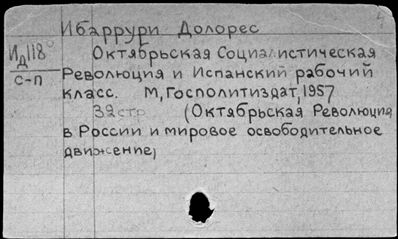 Ибаррури Долорес
Ид118
с-п
Октябрьская Социалистическая
Революция и Испанский рабочий
класс. М, Госполитиздат, 1957
32 стр (Октябрьская Революция
в России и мировое освободительное
движение,